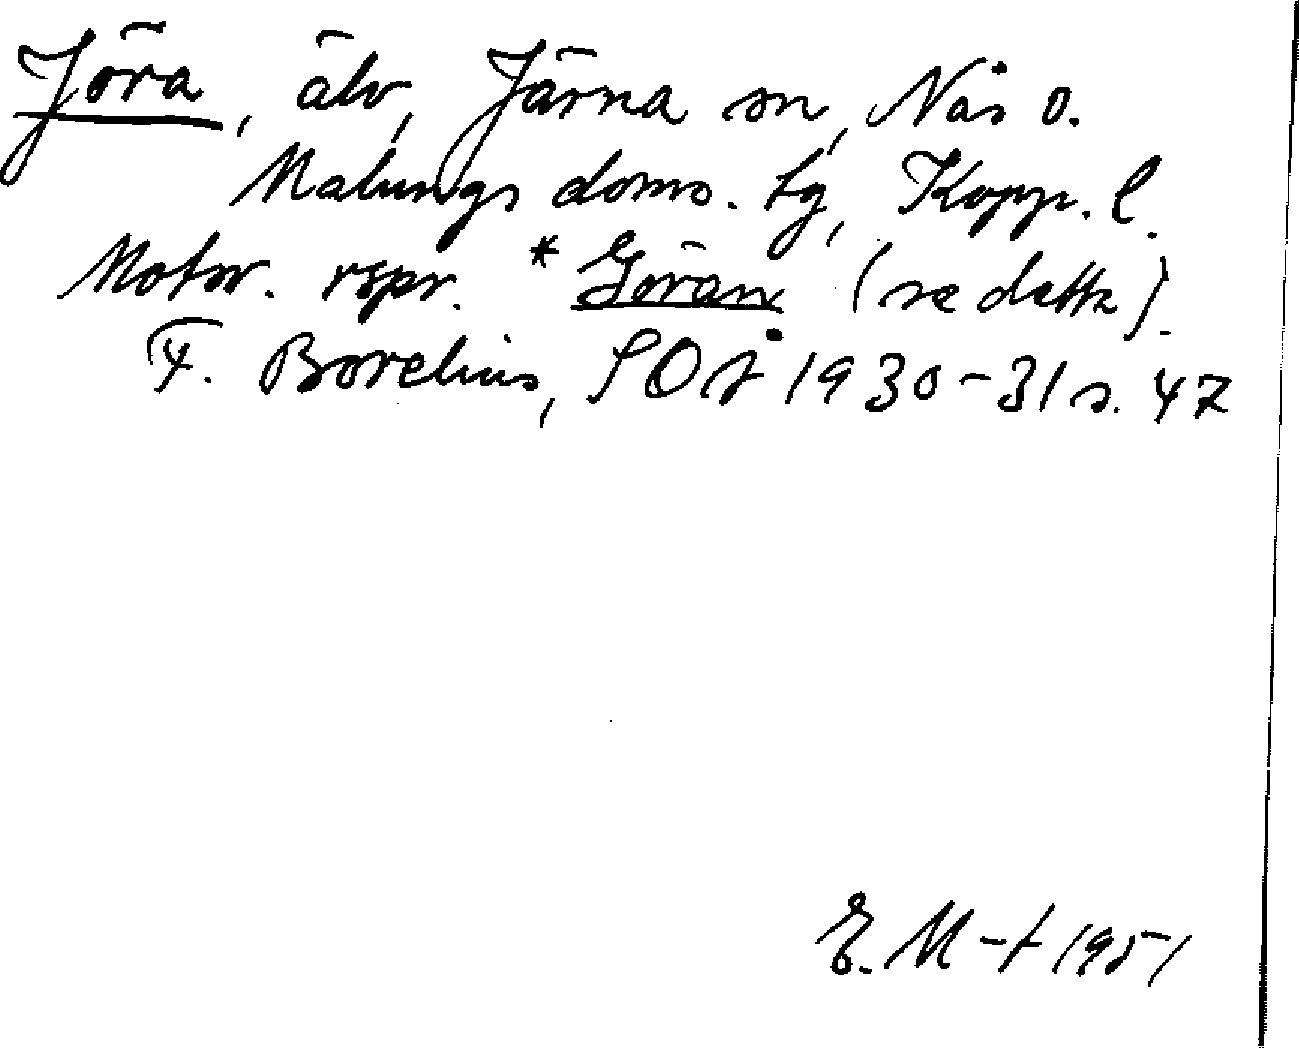 Jöra, älv, Järna sn, Nås o.
Malungs doms. tg, Kopp. l.
Motsv. rspr. *Göran (se detta).
F. Borelius, SOÅ 1930-31 s. 47
E. M-t 1951